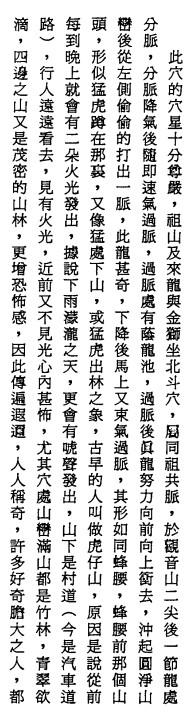 此穴的穴星十分尊嚴，祖山及來龍與金獅坐北斗穴，屬同祖共脈，於觀音山二尖後一節龍處
分脈，分脈降氣後隨即速氣過脈，過脈處有蔭龍池，過脈後眞龍努力向前向上衝去，沖起圓淨山
巒後從左側偷偷的打出一脈，此龍甚奇，下降後馬上又束氣過脈，其形如同蜂腰，蜂腰前那個山
頭，形似猛虎蹲在那裏，又像猛處下山，或猛虎出林之象，古早的人叫做虎仔山，原因是說從前
每到晚上就會有二朵火光發出，據說下雨濛瀧之天，更會有唬聲發出，山下是村道（今是汽車道
路），行人遠遠看去，見有火光，近前又不見光心內甚怖，尤其穴處山巒滿山都是竹林，青翠欲
滴，四邊之山又是茂密的山林，更增恐怖感，因此傳遍遐邇，人人稱奇，許多好奇膽大之人，都